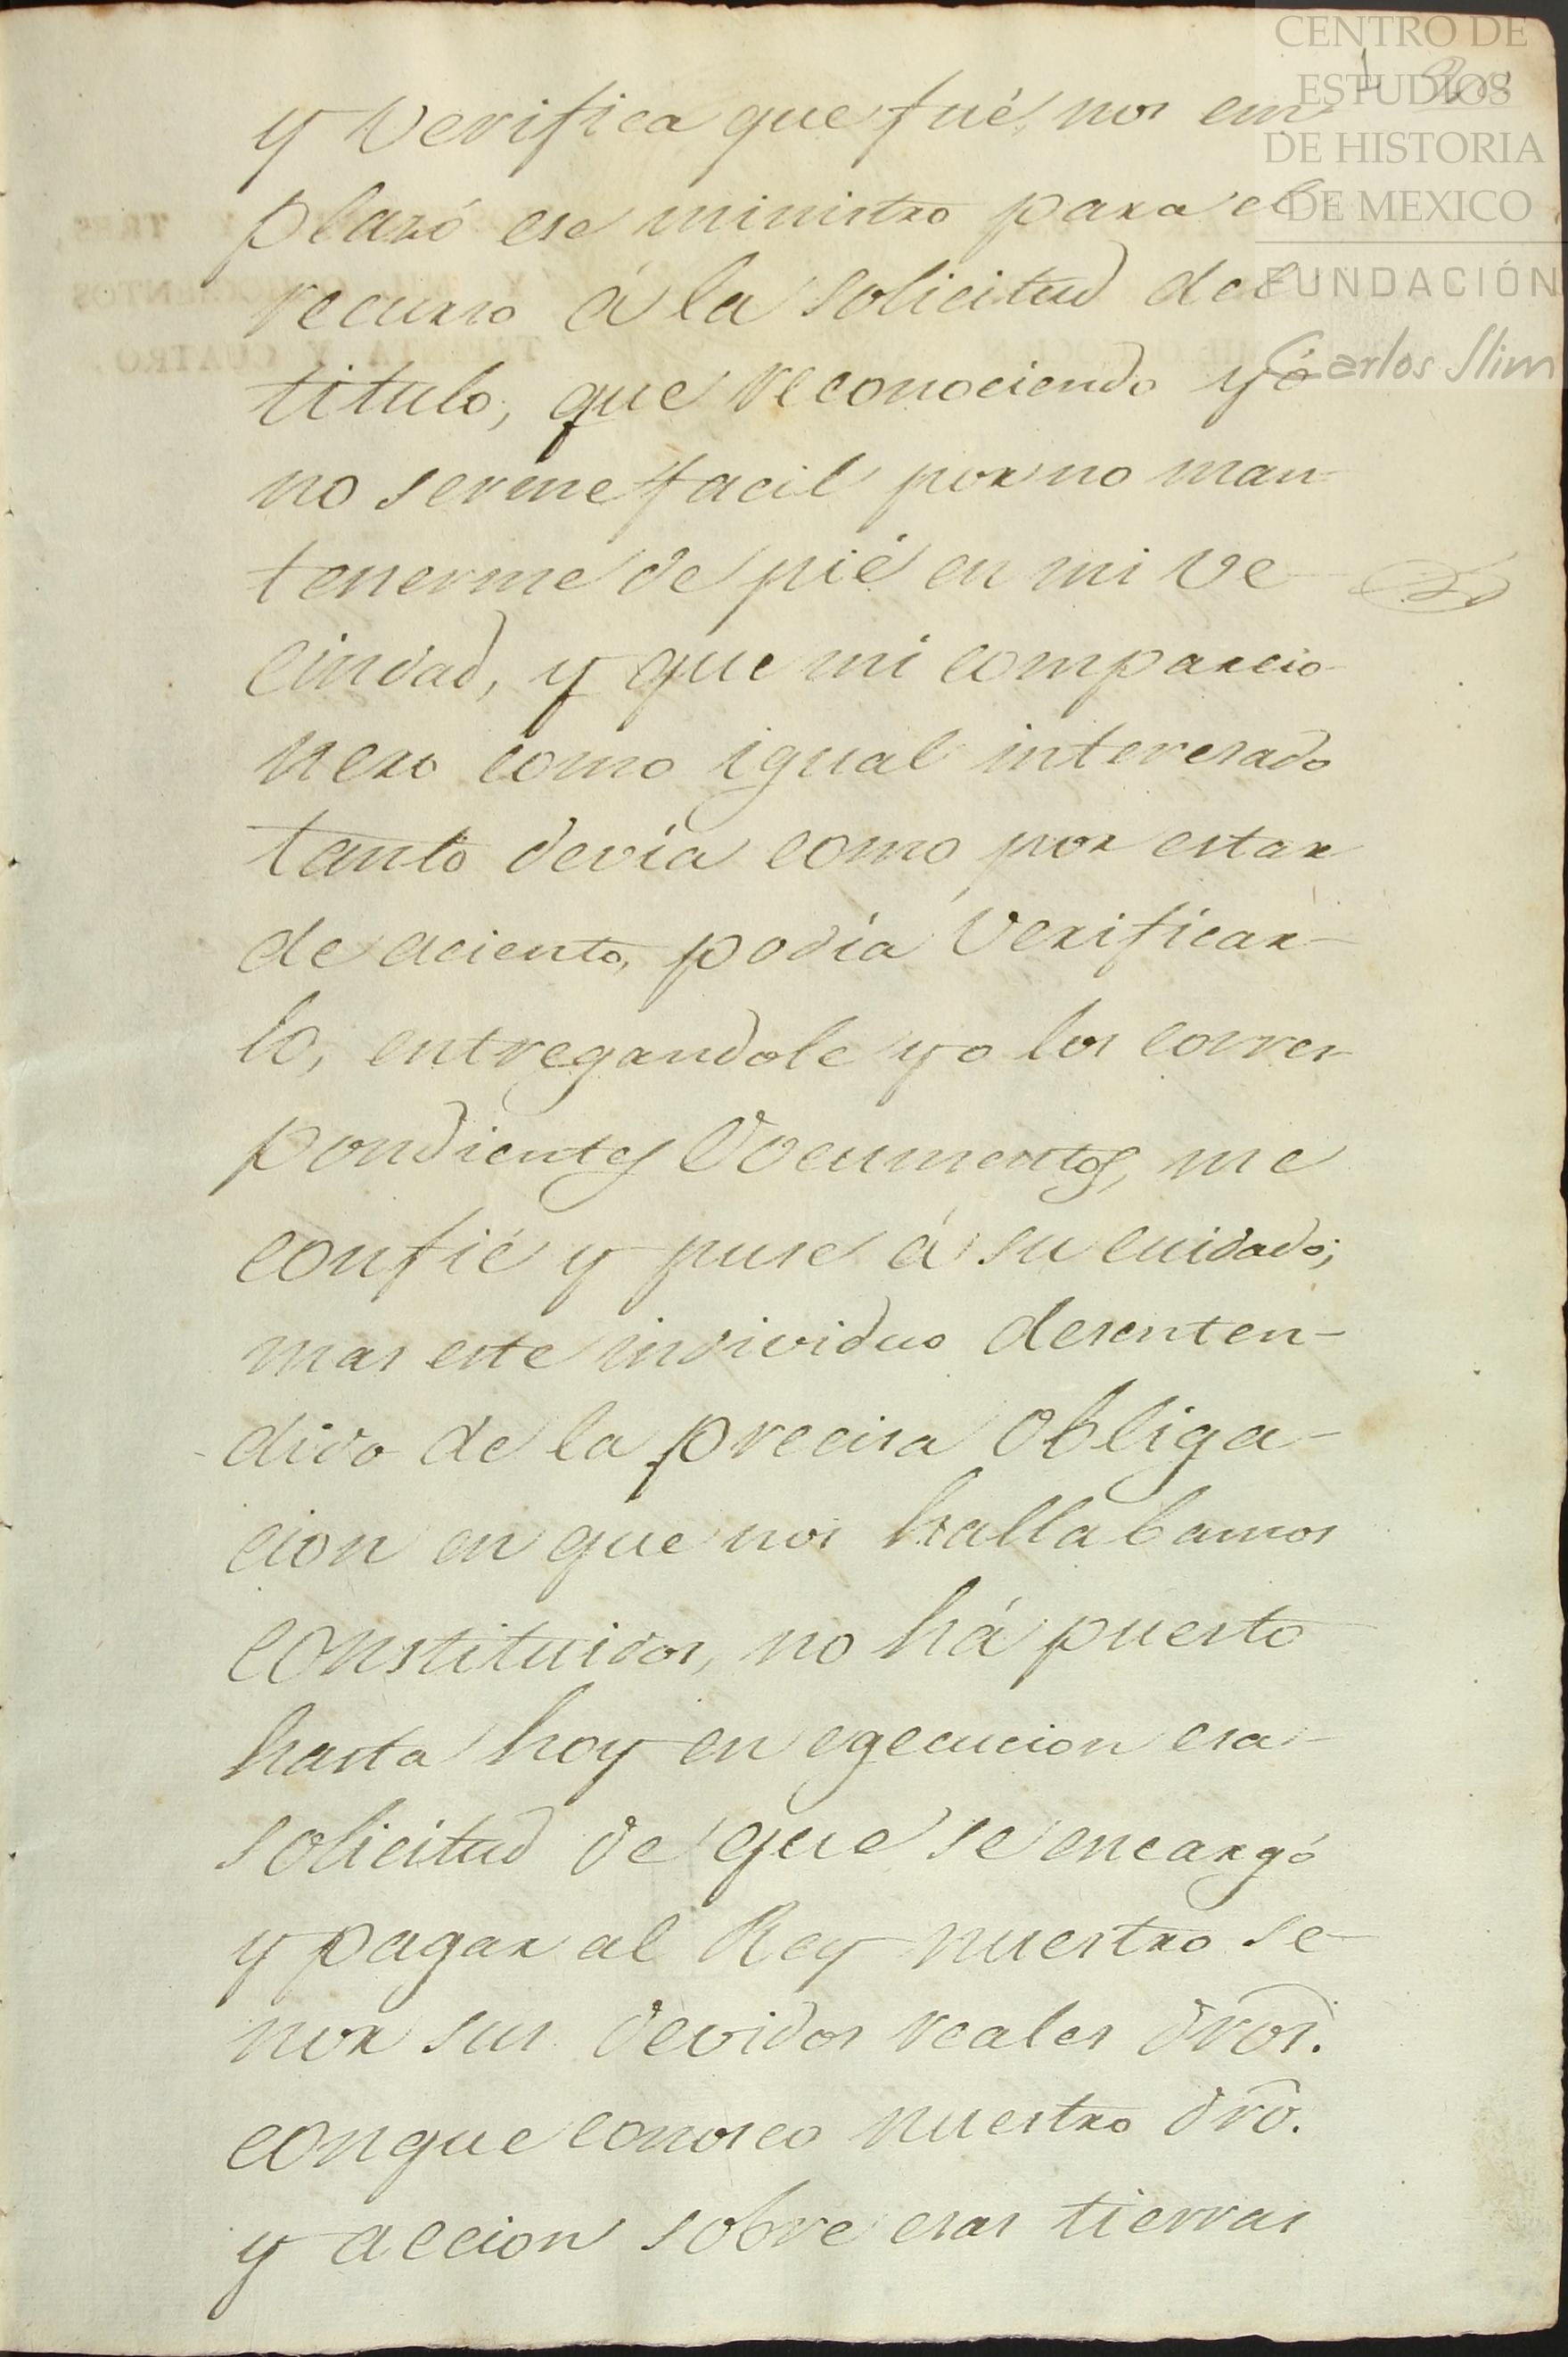 CENTRO DE
ESTUDIOS
DE HISTORIA
DE MEXICO
FUNDACIÓN
Carlos Slim
y verifica que fué, nos em
plazó ese ministro para el
recurso á la solicitud del
titulo, que reconociendo yó
no serme facil por no man-
tenerme de pié en mi ve-
cindad, y que mi comparcio-
nero como igual interesado
tanto devia como por estar
de aciento, podia verificar-
lo, entregandole yo los corres-
pondientes Documentos, me
confié y puse á su cuidado;
mas este individuo desenten-
dido de la precisa obliga-
cion en que nos hallabamos
constituidos, no há puesto
hasta hoy en egecucion esa-
solicitud de que se encargó
y pagar al Rey nuestro se-
nor sus devidos reales dros.
conque conosco nuestro dro.
y accion sobre esas tierras